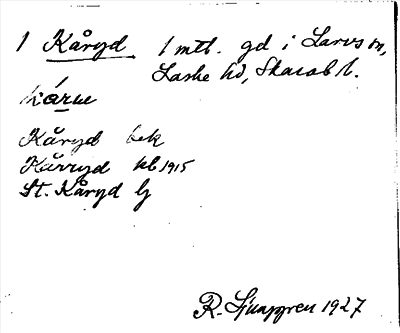 1 Kåryd 1 mtl. gd i Larvs sn,
Laske hd, Skarab. l.
kárue
Kåryd bek
Kårryd kb 1915
St. Kåryd lj
R. Ljunggren 1927